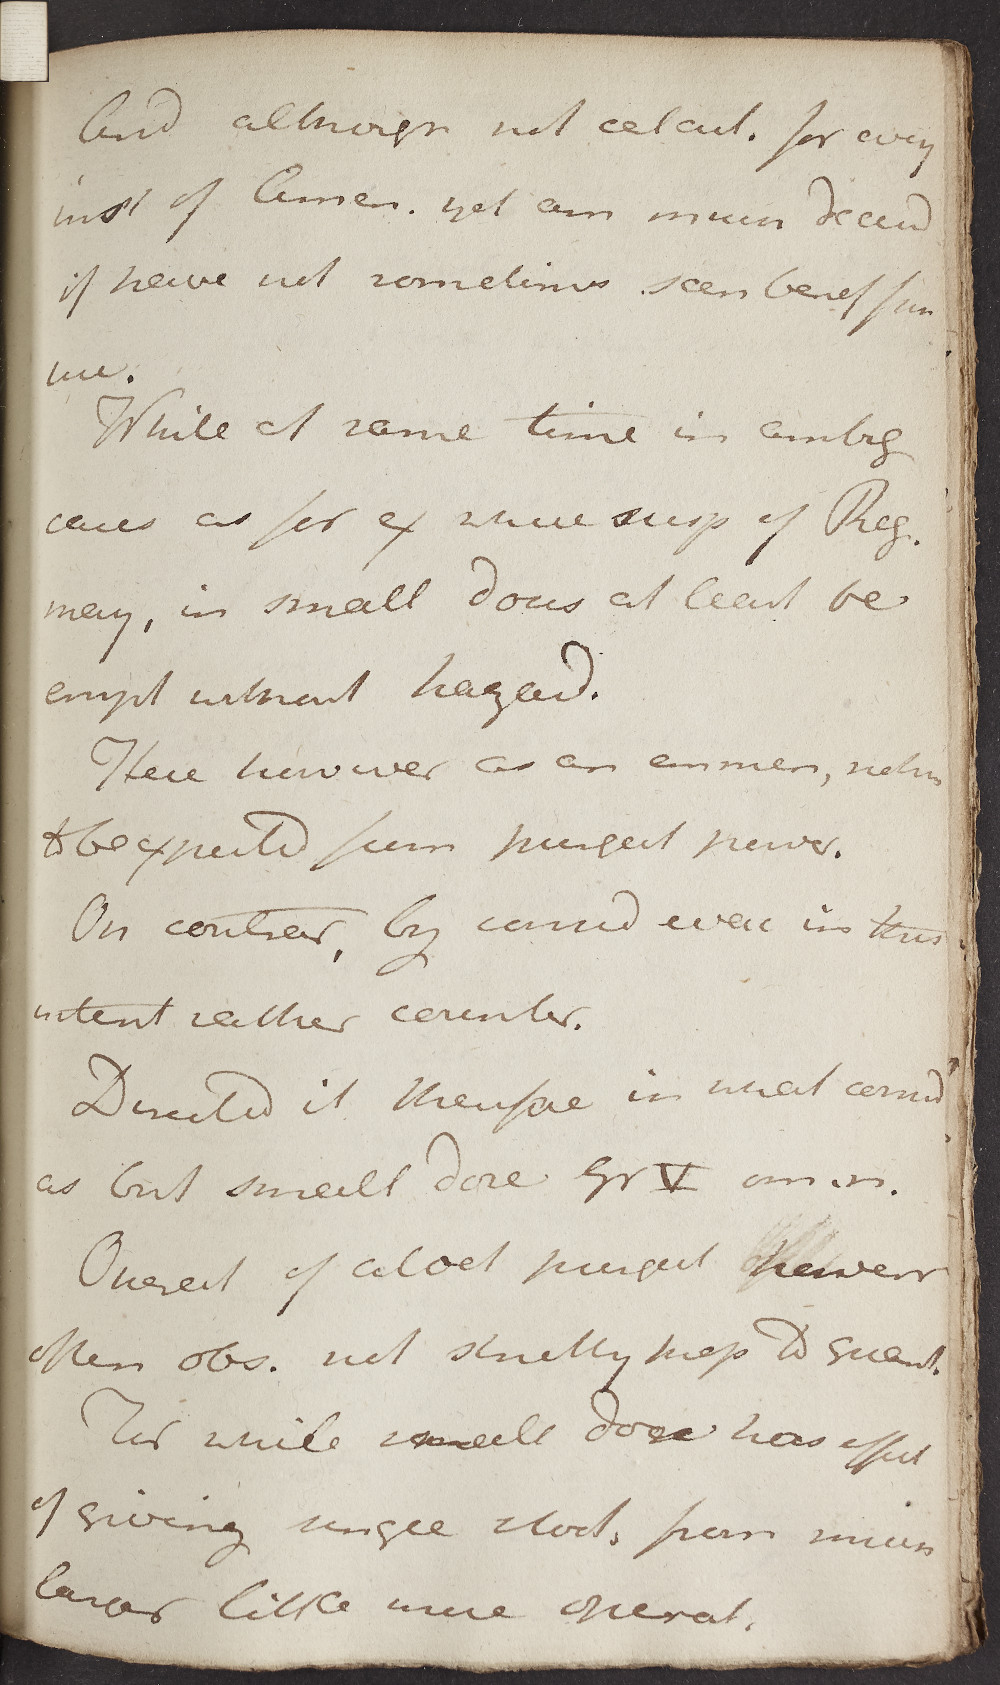 And although not calcul. for every
inst of Amen. yet am much deceivd
if have not sometimes seen benef from
use.
While at same time in ambig
cases as for ex where susp of Preg.
may, in small doses at least be
empl without hazard.
Here however as an emmen, noth
to be expected from purgat power.
On contrar, by considd even in this
intent rather counter.
Directed it therefore in what considd
as but small dose gr V om. n.
Operat of aloet purgat however
often obs. not strictly prop to quant.
For while small dose has effect
of giving single stool, from much
larger little more operat.